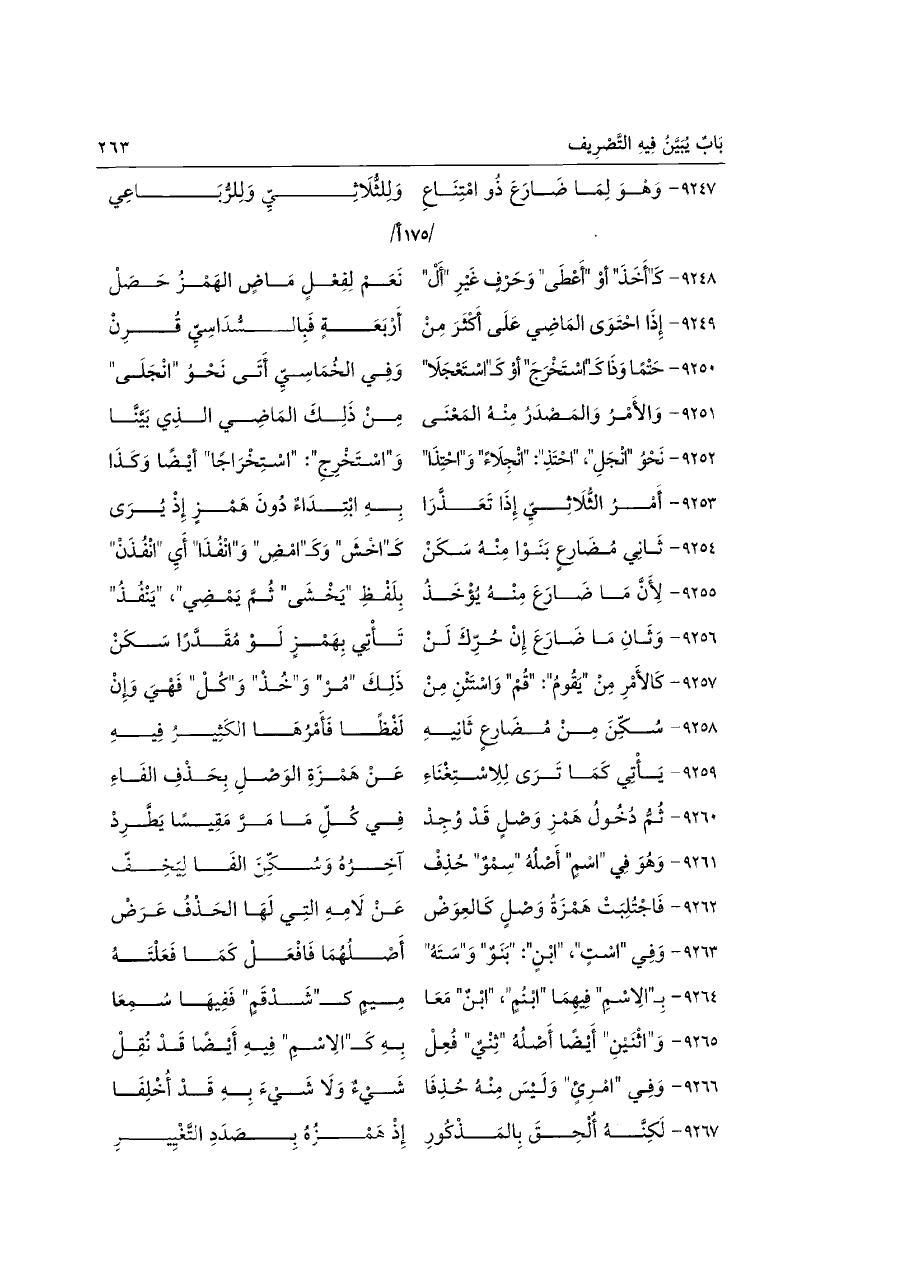 بَابٌ يُبَيَّنُ فِيهِ التَّصْرِيف ٢٦٣
٩٢٤٧- وَهْوَ لِمَا ضَارَعَ ذُو امْتِنَاعِ وَلِلثُّلَاثِيِّ وَلِلرُّبَاعِي
/١٧٥أ/
٩٢٤٨- كَـ"أَخَذَ" أَوْ "أَعْطَى" وَحَرْفٍ غَيْرِ "أَلْ" نَعَمْ لِفِعْلٍ مَاضٍ الهَمْزُ حَصَلْ
٩٢٤٩- إِذَا احْتَوَى المَاضِي عَلَى أَكْثَرَ مِنْ أَرْبَعَةٍ فَبِالسُّدَاسِيِّ قُرِنْ
٩٢٥٠- حَتْمًا وَذَا كَـ"اسْتَخْرَجَ" أَوْ كَـ"اسْتَعْجَلَا" وَفِي الخُمَاسِيِّ أَتَى نَحْوُ "انْجَلَى"
٩٢٥١- وَالأَمْرُ وَالمَصْدَرُ مِنْهُ المَعْنَى مِنْ ذَلِكَ المَاضِي الذِي بَيَّنَّا
٩٢٥٢- نَحْوُ "انْجَلِ"، "احْتَذِ": "انْجِلَاءً" وَ"احْتِذَا" وَ"اسْتَخْرِجِ": "اسْتِخْرَاجًا" أَيْضًا وَكَذَا
٩٢٥٣- أَمْرُ الثُّلَاثِيِّ إِذَا تَعَذَّرَا بِهِ ابْتِدَاءٌ دُونَ هَمْزٍ إِذْ يُرَى
٩٢٥٤- ثَانِي مُضَارِعٍ بَنَوْا مِنْهُ سَكَنْ كَـ"اخْشَ" وَكَـ"امْضِ" وَ"انْفُذَا" أَيِ "انْفُذَنْ"
٩٢٥٥- لِأَنَّ مَا ضَارَعَ مِنْهُ يُؤْخَذُ بِلَفْظِ "يَخْشَى" ثُمَّ يَمْضِي"، "يَنْفُذُ"
٩٢٥٦- وَثَانِ مَا ضَارَعَ إِنْ حُرِّكَ لَنْ تَأْتِي بِهَمْزٍ لَوْ مُقَدَّرًا سَكَنْ
٩٢٥٧- كَالأَمْرِ مِنْ "يَقُومُ": "قُمْ" وَاسْتَثْنِ مِنْ ذَلِكَ "مُرْ" وَ"خُذْ" وَ"كُلْ" فَهْيَ وَإِنْ
٩٢٥٨- سُكِّنَ مِنْ مُضَارِعٍ ثَانِيهِ لَفْظًا فَأَمْرُهَا الكَثِيرُ فِيهِ
٩٢٥٩- يَأْتِي كَمَا تَرَى لِلِاسْتِغْنَاءِ عَنْ هَمْزَةِ الوَصْلِ بِحَذْفِ الفَاءِ
٩٢٦٠- ثُمَّ دُخُولُ هَمْزِ وَصْلٍ قَدْ وُجِدْ فِي كُلِّ مَا مَرَّ مَقِيسًا يَطَّرِدْ
٩٢٦١- وَهُوَ فِي "اسْمٍ" أَصْلُهُ "سِمْوٌ" حُذِفْ آخِرُهُ وَسُكِّنَ الفَا لِيَخِفّ
٩٢٦٢- فَاجْتُلِبَتْ هَمْزَةُ وَصْلٍ كَالعِوَضْ عَنْ لَامِهِ التِي لَهَا الحَذْفُ عَرَضْ
٩٢٦٣- وَفِي "اسْتٍ"، "ابْنٍ": "بَنَوٌ" وَ"سَتَهُ" أَصْلُهُمَا فَافْعَلْ كَمَا فَعَلْتَهُ
٩٢٦٤- بِـ"الِاسْمِ" فِيهِمَا "ابْنُمٌ"، "ابْنٌ" مَعَا مِيمٍ كَـ"شَدْقَمٍ" فَفِيهَا سُمِعَا
٩٢٦٥- وَ"اثْنَيْنِ" أَيْضًا أَصْلُهُ "ثِنْيٌ" فُعِلْ بِهِ كَـ"الِاسْمِ" فِيهِ أَيْضًا قَدْ نُقِلْ
٩٢٦٦- وَفِي "امْرِئٍ" وَلَيْسَ مِنْهُ حُذِفَا شَيْءٌ وَلَا شَيْءَ بِهِ قَدْ أُخْلِفَا
٩٢٦٧- لَكِنَّهُ أُلْحِقَ بِالمَذْكُورِ إِذْ هَمْزُهُ بِصَدَدِ التَّغْيِيرِ